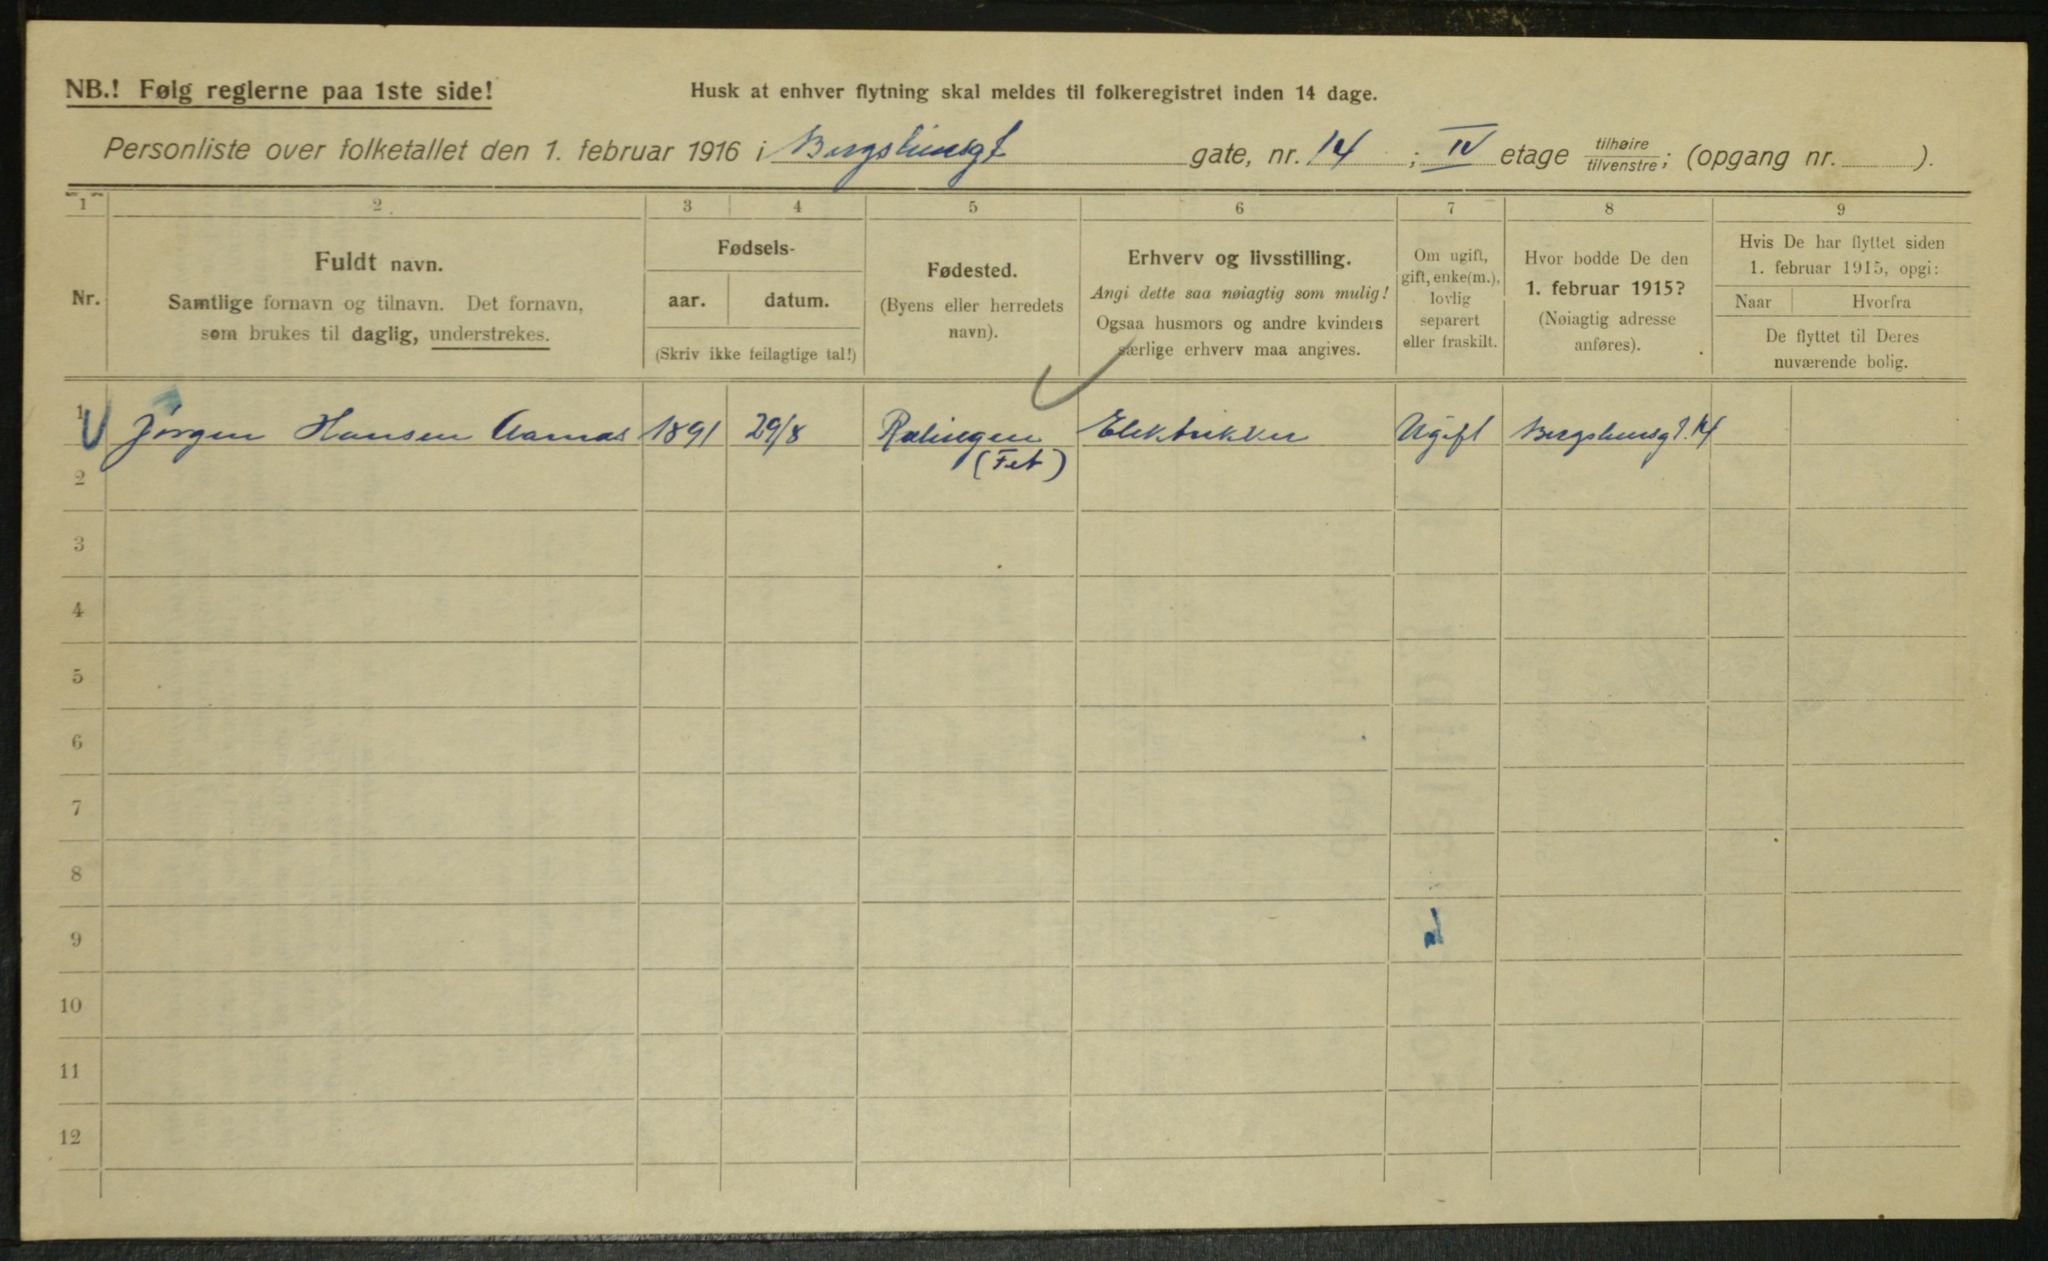 NB.! Følg reglerne paa 1ste side!
Husk at enhver flytning skal meldes til folkeregistret inden 14 dage.
Personliste over folketallet den 1. februar 1916 i Bergsliensgt gate, nr. 14 ; IV etage tilhøire/tilvenstre; (opgang nr. ).
1 2 3 4 5 6 7 8 9
Nr.
Fuldt navn.
Samtlige fornavn og tilnavn. Det fornavn,
som brukes til daglig, understrekes.
Fødsels-
aar. datum.
(Skriv ikke feilagtige tal!)
Fødested.
(Byens eller herredets
navn).
Erhverv og livsstilling.
Angi dette saa nøiagtig som mulig!
Ogsaa husmors og andre kvinders
særlige erhverv maa angives.
Om ugift,
gift, enke(m.),
lovlig
separert
eller fraskilt.
Hvor bodde De den
1. februar 1915?
(Nøiagtig adresse
anføres).
Hvis De har flyttet siden
1. februar 1915, opgi:
Naar Hvorfra
De flyttet til Deres
nuværende bolig.
1 Jørgen Hansen Aamas 1891 29/8 Rælingen Elektrikker Ugift Bergsliensgt. 14
(Fet)
2
3
4
5
6
7
8
9
10
11
12